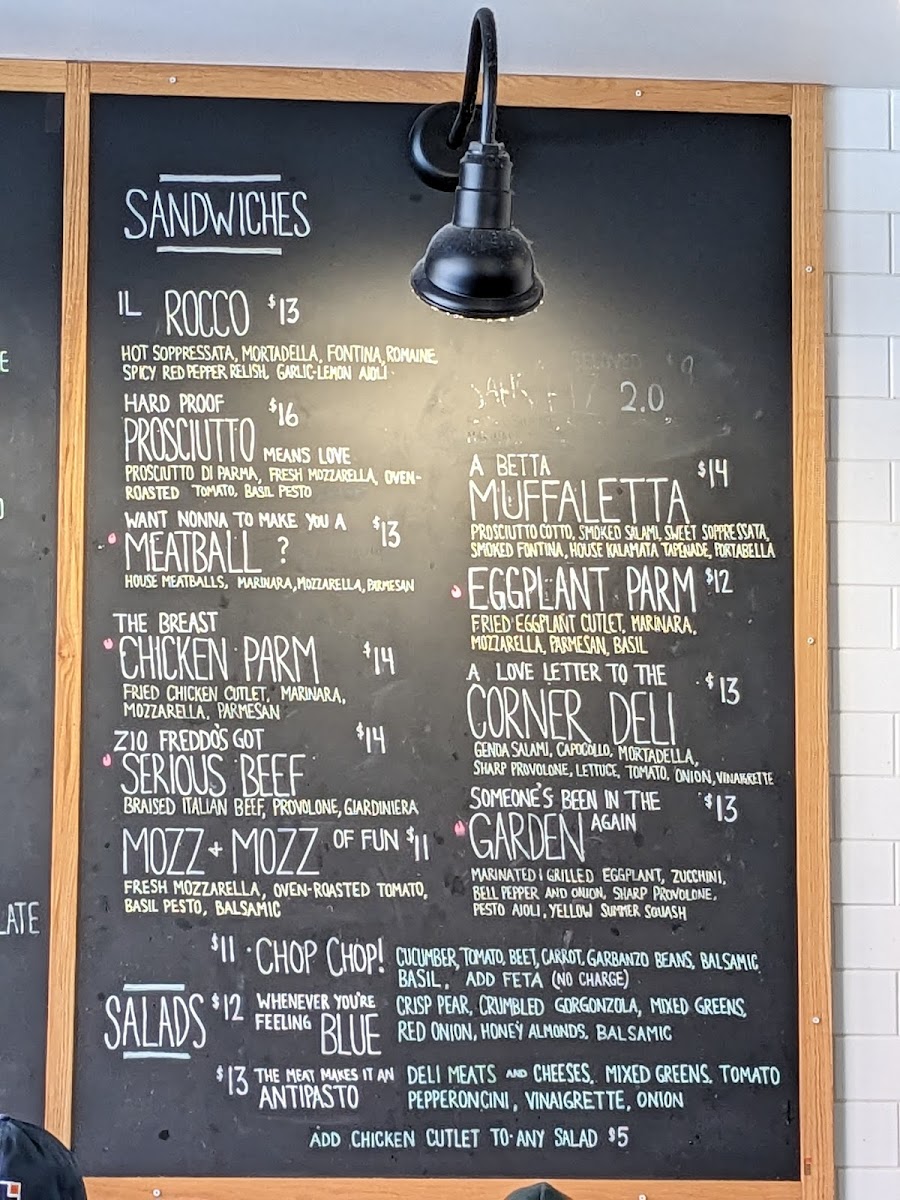 SANDWICHES
IL ROCCO $13
HOT SOPPRESSATA, MORTADELLA, FONTINA, ROMAINE,
SPICY RED PEPPER RELISH, GARLIC-LEMON AIOLI
HARD PROOF $16
PROSCIUTTO MEANS LOVE
PROSCIUTTO DI PARMA, FRESH MOZZARELLA, OVEN-
ROASTED TOMATO, BASIL PESTO
WANT NONNA TO MAKE YOU A $13
MEATBALL ?
HOUSE MEATBALLS, MARINARA, MOZZARELLA, PARMESAN
THE BREAST
CHICKEN PARM $14
FRIED CHICKEN CUTLET, MARINARA,
MOZZARELLA, PARMESAN
ZIO FREDDO'S GOT $14
SERIOUS BEEF
BRAISED ITALIAN BEEF, PROVOLONE, GIARDINIERA
MOZZ + MOZZ OF FUN $11
FRESH MOZZARELLA, OVEN-ROASTED TOMATO,
BASIL PESTO, BALSAMIC
BELOVED $9
2.0
A BETTA $14
MUFFALETTA
PROSCIUTTO COTTO, SMOKED SALAMI, SWEET SOPPRESSATA,
SMOKED FONTINA, HOUSE KALAMATA TAPENADE, PORTABELLA
EGGPLANT PARM $12
FRIED EGGPLANT CUTLET, MARINARA,
MOZZARELLA, PARMESAN, BASIL
A LOVE LETTER TO THE $13
CORNER DELI
GENOA SALAMI, CAPOCOLLO, MORTADELLA,
SHARP PROVOLONE, LETTUCE, TOMATO, ONION, VINAIGRETTE
SOMEONE'S BEEN IN THE $13
GARDEN AGAIN
MARINATED & GRILLED EGGPLANT, ZUCCHINI,
BELL PEPPER AND ONION, SHARP PROVOLONE,
PESTO AIOLI, YELLOW SUMMER SQUASH
SALADS
$11 · CHOP CHOP! CUCUMBER, TOMATO, BEET, CARROT, GARBANZO BEANS, BALSAMIC,
BASIL, ADD FETA (NO CHARGE)
$12 WHENEVER YOU'RE FEELING BLUE CRISP PEAR, CRUMBLED GORGONZOLA, MIXED GREENS,
RED ONION, HONEY ALMONDS, BALSAMIC
$13 THE MEAT MAKES IT AN ANTIPASTO DELI MEATS AND CHEESES, MIXED GREENS, TOMATO
PEPPERONCINI, VINAIGRETTE, ONION
ADD CHICKEN CUTLET TO ANY SALAD $5